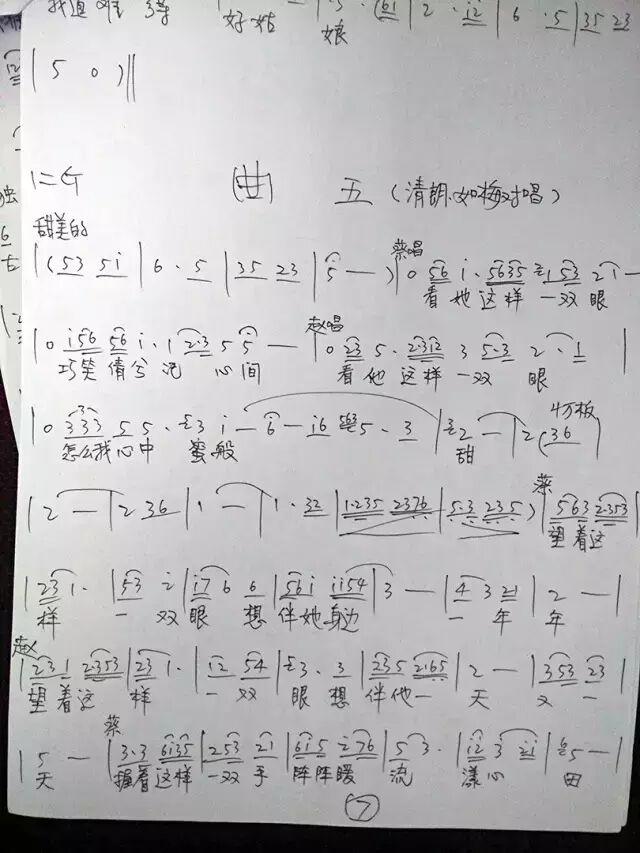 我道 难 得 好姑 娘
| 5 0 ) ||
1=G 曲 五 (清朗、如梅对唱)
甜美的
|( 53 5i | 6 · 5 | 35 23 | 5 — )| 0 56 i · 5635 1 53 2 1 —
蔡唱
看她这样 一双 眼
| 0 i56 56 i · 1 2·3 5 5 — | 0 23 5 · 2312 3 5·3 2 · 1 |
赵唱
巧笑 倩兮 沉 心间 看他 这样 一双 眼
| 0 333 5 5 · 3 i — 6 — i6 5 · 3 | 2 — | 2 ( 36 |
怎么我心中 蜜般 甜
| 2 — | 2 36 | 1 — | 1 · 32 | 1·235 2376 | 5·3 235 )| 563 2353 |
蔡
望着这
| 23 1 · | 53 i | i7 6 6 | 56i ii54 | 3 — | 4 3 21 | 2 — |
样 一 双 眼 想 伴她 身边 一 年 年
赵
| 231 2353 | 23 1 · | 12 54 | 3 · 3 | 235 2165 | 2 — | 353 23 |
望着这 样 一 双 眼 想 伴他 一 天 又 一
| 5 — | 3·3 6i35 | 253 21 | 6i5 276 | 5 3 · | i2 3 2i | 5 — |
蔡
天 握着这样 一双 手 阵阵暖 流 漾心 田
7